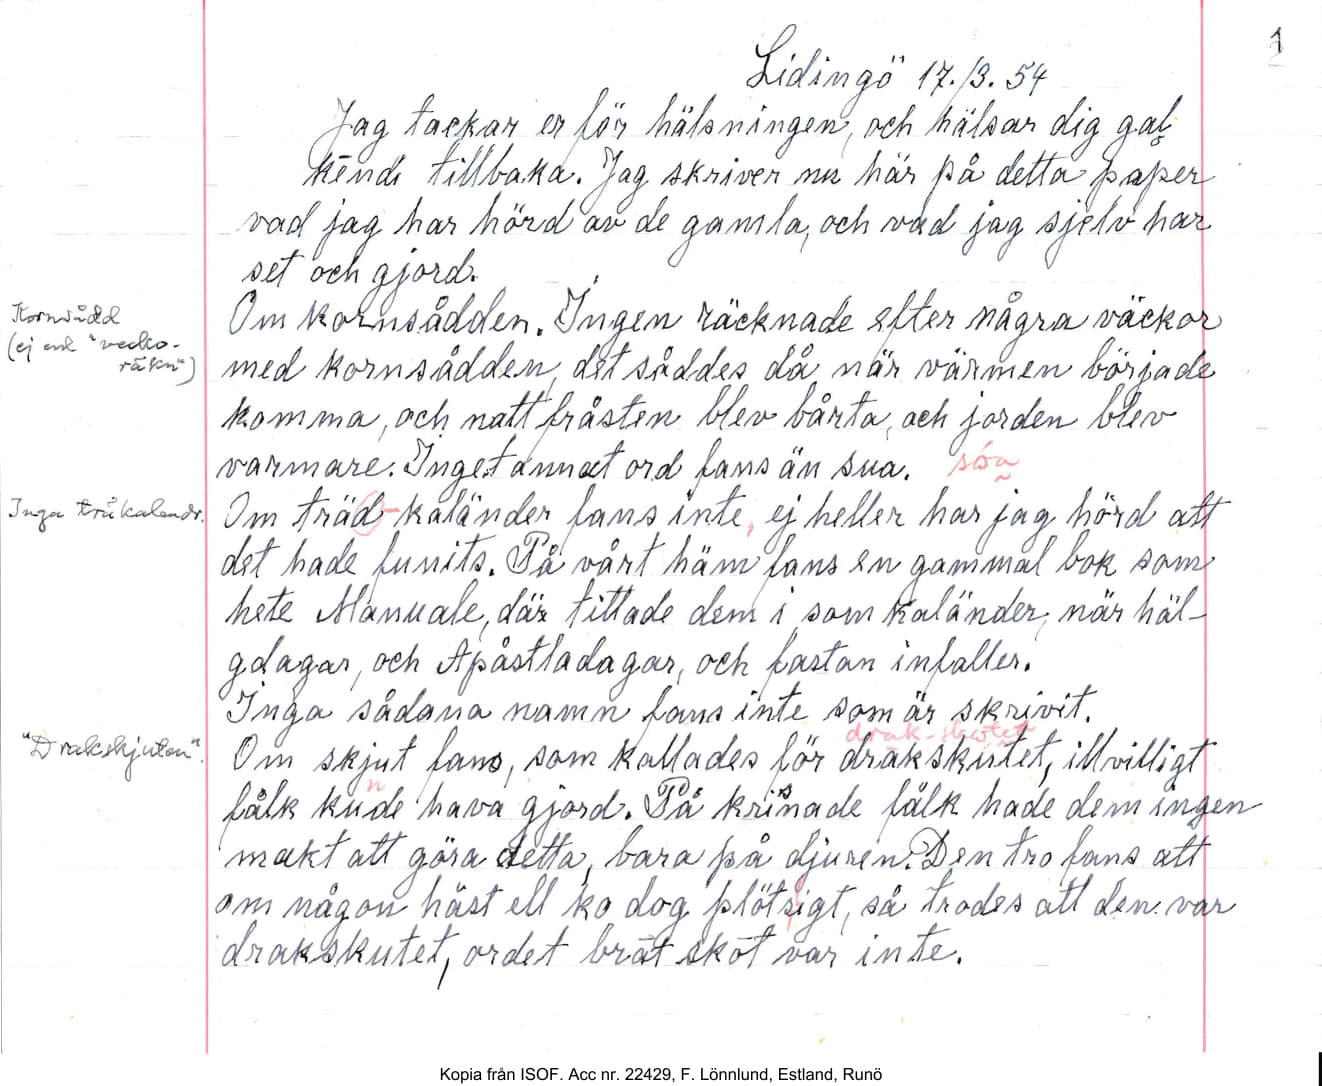 1
Lidingö 17./3. 54
Jag tackar er för hälsningen, och hälsar dig gal
kēndi tillbaka. Jag skriver nu här på detta paper
vad jag har hörd av de gamla, och vad jag sjelv har
set och gjord.
Kornsådd
(ej enl "vecko-
räkn")
Om kornsådden. Ingen räcknade efter några väckor
med kornsådden, det såddes då när värmen började
komma, och natt fråsten blev bårta, och jorden blev
varmare. Inget annat ord fans än sua. sóa
Inga träkalendr.
Om träd-kaländer fans inte, ej heller har jag hörd att
det hade funits. På vårt häm fans en gammal bok som
hete Manuale, där tittade dem i som kaländer, när häl-
gdagar, och Apåstladagar, och fastan infaller.
Inga sådana namn fans inte som är skrivit.
"Drakskjuten".
drak-skotet
Om skjut fans, som kallades för drakskutet, illvilligt
n
fålk kude hava gjord. På krisnade fålk hade dem ingen
makt att göra detta, bara på djuren. Den tro fans att
om någon häst ell ko dog plötsigt, så trodes att den var
drakskutet, ordet brāt skōt var inte.
Kopia från ISOF. Acc nr. 22429, F. Lönnlund, Estland, Runö